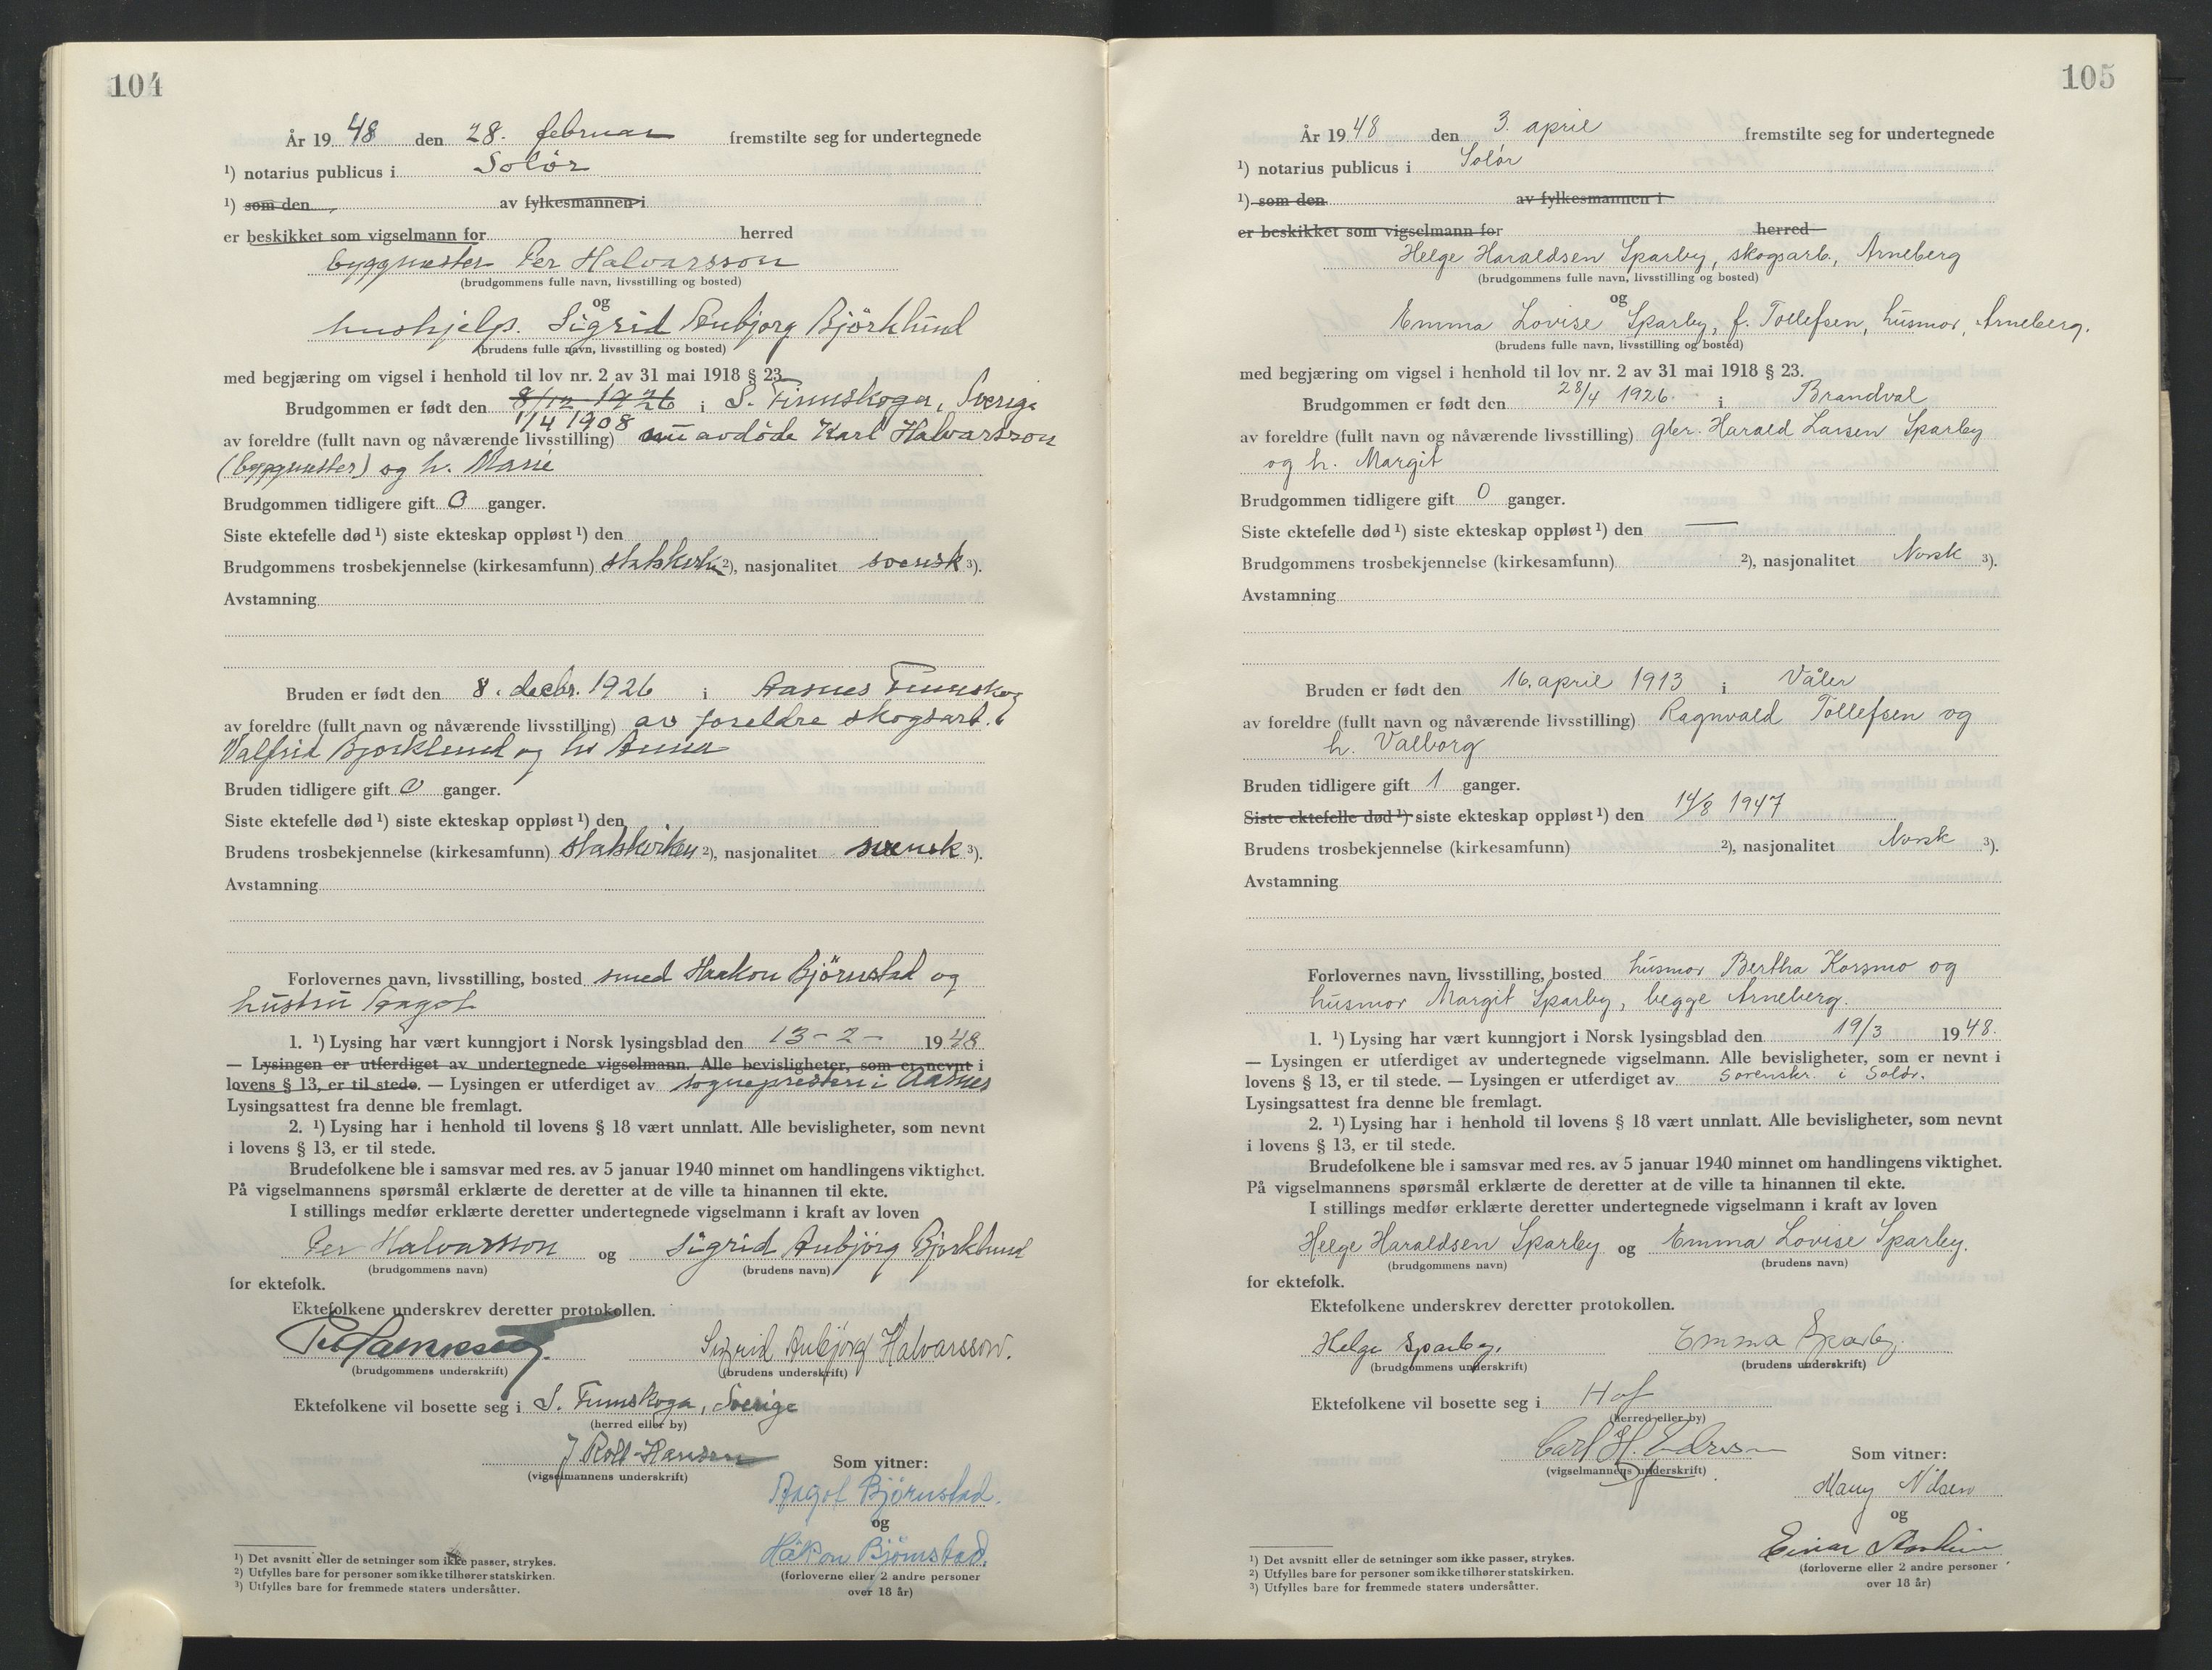 104
År 19 48 den 28. februar fremstilte seg for undertegnede
¹) notarius publicus i Solör
¹) som den av fylkesmannen i
er beskikket som vigselmann for herred
byggmester Per Halvarsson
(brudgommens fulle navn, livsstilling og bosted)
og
hushjelp. Sigrid Aubjorg Björklund
(brudens fulle navn, livsstilling og bosted)
med begjæring om vigsel i henhold til lov nr. 2 av 31 mai 1918 § 23.
Brudgommen er født den 8/12 1926 i S. Finnskoga, Sverige
1/4 1908
av foreldre (fullt navn og nåværende livsstilling) nu avdöde Karl Halvarsson
(byggmester) og h. Marie
Brudgommen tidligere gift 0 ganger.
Siste ektefelle død ¹) siste ekteskap oppløst ¹) den
Brudgommens trosbekjennelse (kirkesamfunn) statskirken ²), nasjonalitet svensk ³).
Avstamning
Bruden er født den 8. decbr. 1926 i Aasnes Finnskog
av foreldre (fullt navn og nåværende livsstilling) av foreldre skogsarb.
Valfrid Bjorklund og h. Anna
Bruden tidligere gift 0 ganger.
Siste ektefelle død ¹) siste ekteskap oppløst ¹) den
Brudens trosbekjennelse (kirkesamfunn) statskirken ²), nasjonalitet svensk ³).
Avstamning
Forlovernes navn, livsstilling, bosted smed Haakon Björnstad og
hustru Aagot
1. ¹) Lysing har vært kunngjort i Norsk lysingsblad den 13-2- 1948
— Lysingen er utferdiget av undertegnede vigselmann. Alle bevisligheter, som er nevnt i
lovens § 13, er til stede. — Lysingen er utferdiget av sognepresten i Aasnes
Lysingsattest fra denne ble fremlagt.
2. ¹) Lysing har i henhold til lovens § 18 vært unnlatt. Alle bevisligheter, som nevnt
i lovens § 13, er til stede.
Brudefolkene ble i samsvar med res. av 5 januar 1940 minnet om handlingens viktighet.
På vigselmannens spørsmål erklærte de deretter at de ville ta hinannen til ekte.
I stillings medfør erklærte deretter undertegnede vigselmann i kraft av loven
Per Halvarsson og Sigrid Aubjörg Bjorklund
(brudgommens navn) (brudens navn)
for ektefolk.
Ektefolkene underskrev deretter protokollen.
Sigrid Aubjörg Halvarsson.
(brudgommens underskrift) (brudens underskrift)
Ektefolkene vil bosette seg i S. Finnskoga, Sverige
(herred eller by)
J Roll-Hansen
(vigselmannens underskrift)
Som vitner:
Aagot Björnstad.
og
Håkon Björnstad.
(forloverne eller 2 andre personer
over 18 år)
¹) Det avsnitt eller de setninger som ikke passer, strykes.
²) Utfylles bare for personer som ikke tilhører statskirken.
³) Utfylles bare for fremmede staters undersåtter.
105
År 19 48 den 3. april fremstilte seg for undertegnede
¹) notarius publicus i Solör
¹) som den av fylkesmannen i
er beskikket som vigselmann for herred
Helge Haraldsen Sparby, skogsarb., Arneberg
(brudgommens fulle navn, livsstilling og bosted)
og
Emma Lovise Sparby, f. Tollefsen, husmor, Arneberg.
(brudens fulle navn, livsstilling og bosted)
med begjæring om vigsel i henhold til lov nr. 2 av 31 mai 1918 § 23.
Brudgommen er født den 28/4 1926. i Brandval
av foreldre (fullt navn og nåværende livsstilling) gbr. Harald Larsen Sparby
og h. Margit
Brudgommen tidligere gift 0 ganger.
Siste ektefelle død ¹) siste ekteskap oppløst ¹) den —
Brudgommens trosbekjennelse (kirkesamfunn) ²), nasjonalitet Norsk ³).
Avstamning
Bruden er født den 16. april 1913 i Våler
av foreldre (fullt navn og nåværende livsstilling) Ragnvald Tollefsen og
h. Valborg
Bruden tidligere gift 1 ganger.
Siste ektefelle død ¹) siste ekteskap oppløst ¹) den 14/8 1947
Brudens trosbekjennelse (kirkesamfunn) ²), nasjonalitet Norsk ³).
Avstamning
Forlovernes navn, livsstilling, bosted husmor Bertha Korsmo og
husmor Margit Sparby, begge Arneberg.
1. ¹) Lysing har vært kunngjort i Norsk lysingsblad den 19/3 1948.
— Lysingen er utferdiget av undertegnede vigselmann. Alle bevisligheter, som er nevnt i
lovens § 13, er til stede. — Lysingen er utferdiget av Sorenskr. i Solör.
Lysingsattest fra denne ble fremlagt.
2. ¹) Lysing har i henhold til lovens § 18 vært unnlatt. Alle bevisligheter, som nevnt
i lovens § 13, er til stede.
Brudefolkene ble i samsvar med res. av 5 januar 1940 minnet om handlingens viktighet.
På vigselmannens spørsmål erklærte de deretter at de ville ta hinannen til ekte.
I stillings medfør erklærte deretter undertegnede vigselmann i kraft av loven
Helge Haraldsen Sparby og Emma Lovise Sparby.
(brudgommens navn) (brudens navn)
for ektefolk.
Ektefolkene underskrev deretter protokollen.
Helge Sparby. Emma Sparby.
(brudgommens underskrift) (brudens underskrift)
Ektefolkene vil bosette seg i Hof
(herred eller by)
Carl H.
(vigselmannens underskrift)
Som vitner:
Mary Nilsen
og
Einar
(forloverne eller 2 andre personer
over 18 år)
¹) Det avsnitt eller de setninger som ikke passer, strykes.
²) Utfylles bare for personer som ikke tilhører statskirken.
³) Utfylles bare for fremmede staters undersåtter.